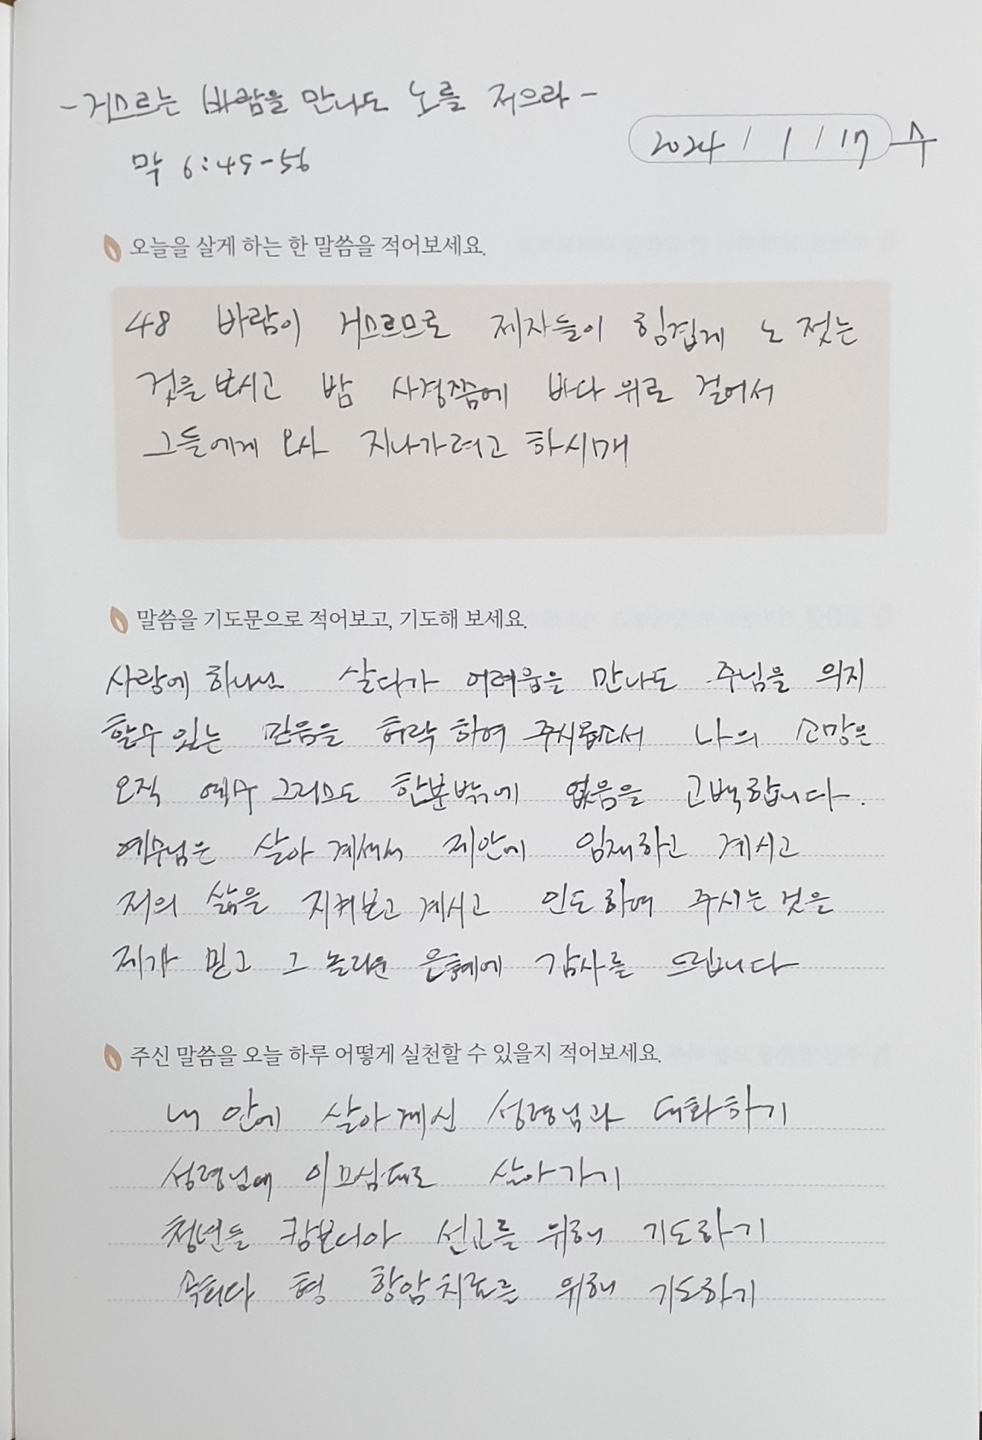 - 거스르는 바람을 만나도 노를 저으라 -
막 6:45-56
2024 / 1 / 17 수
오늘을 살게 하는 한 말씀을 적어보세요.
48 바람이 거스르므로 제자들이 힘겹게 노 젓는
것을 보시고 밤 사경쯤에 바다 위로 걸어서
그들에게 오사 지나가려고 하시매
말씀을 기도문으로 적어보고, 기도해 보세요.
사랑에 하나님 살다가 어려움을 만나도 주님을 의지
할수 있는 믿음을 허락하여 주시옵소서 나의 소망은
오직 예수 그리스도 한분밖에 없음을 고백합니다.
예수님은 살아 계셔서 제안에 임재하고 계시고
저의 삶을 지켜보고 계시고 인도하여 주시는 것을
제가 믿고 그 놀라운 은혜에 감사를 드립니다
주신 말씀을 오늘 하루 어떻게 실천할 수 있을지 적어보세요.
내 안에 살아계신 성령님과 대화하기
성령님에 이끄심대로 살아가기
청년들 캄보디아 선교를 위해 기도하기
형 항암치료를 위해 기도하기